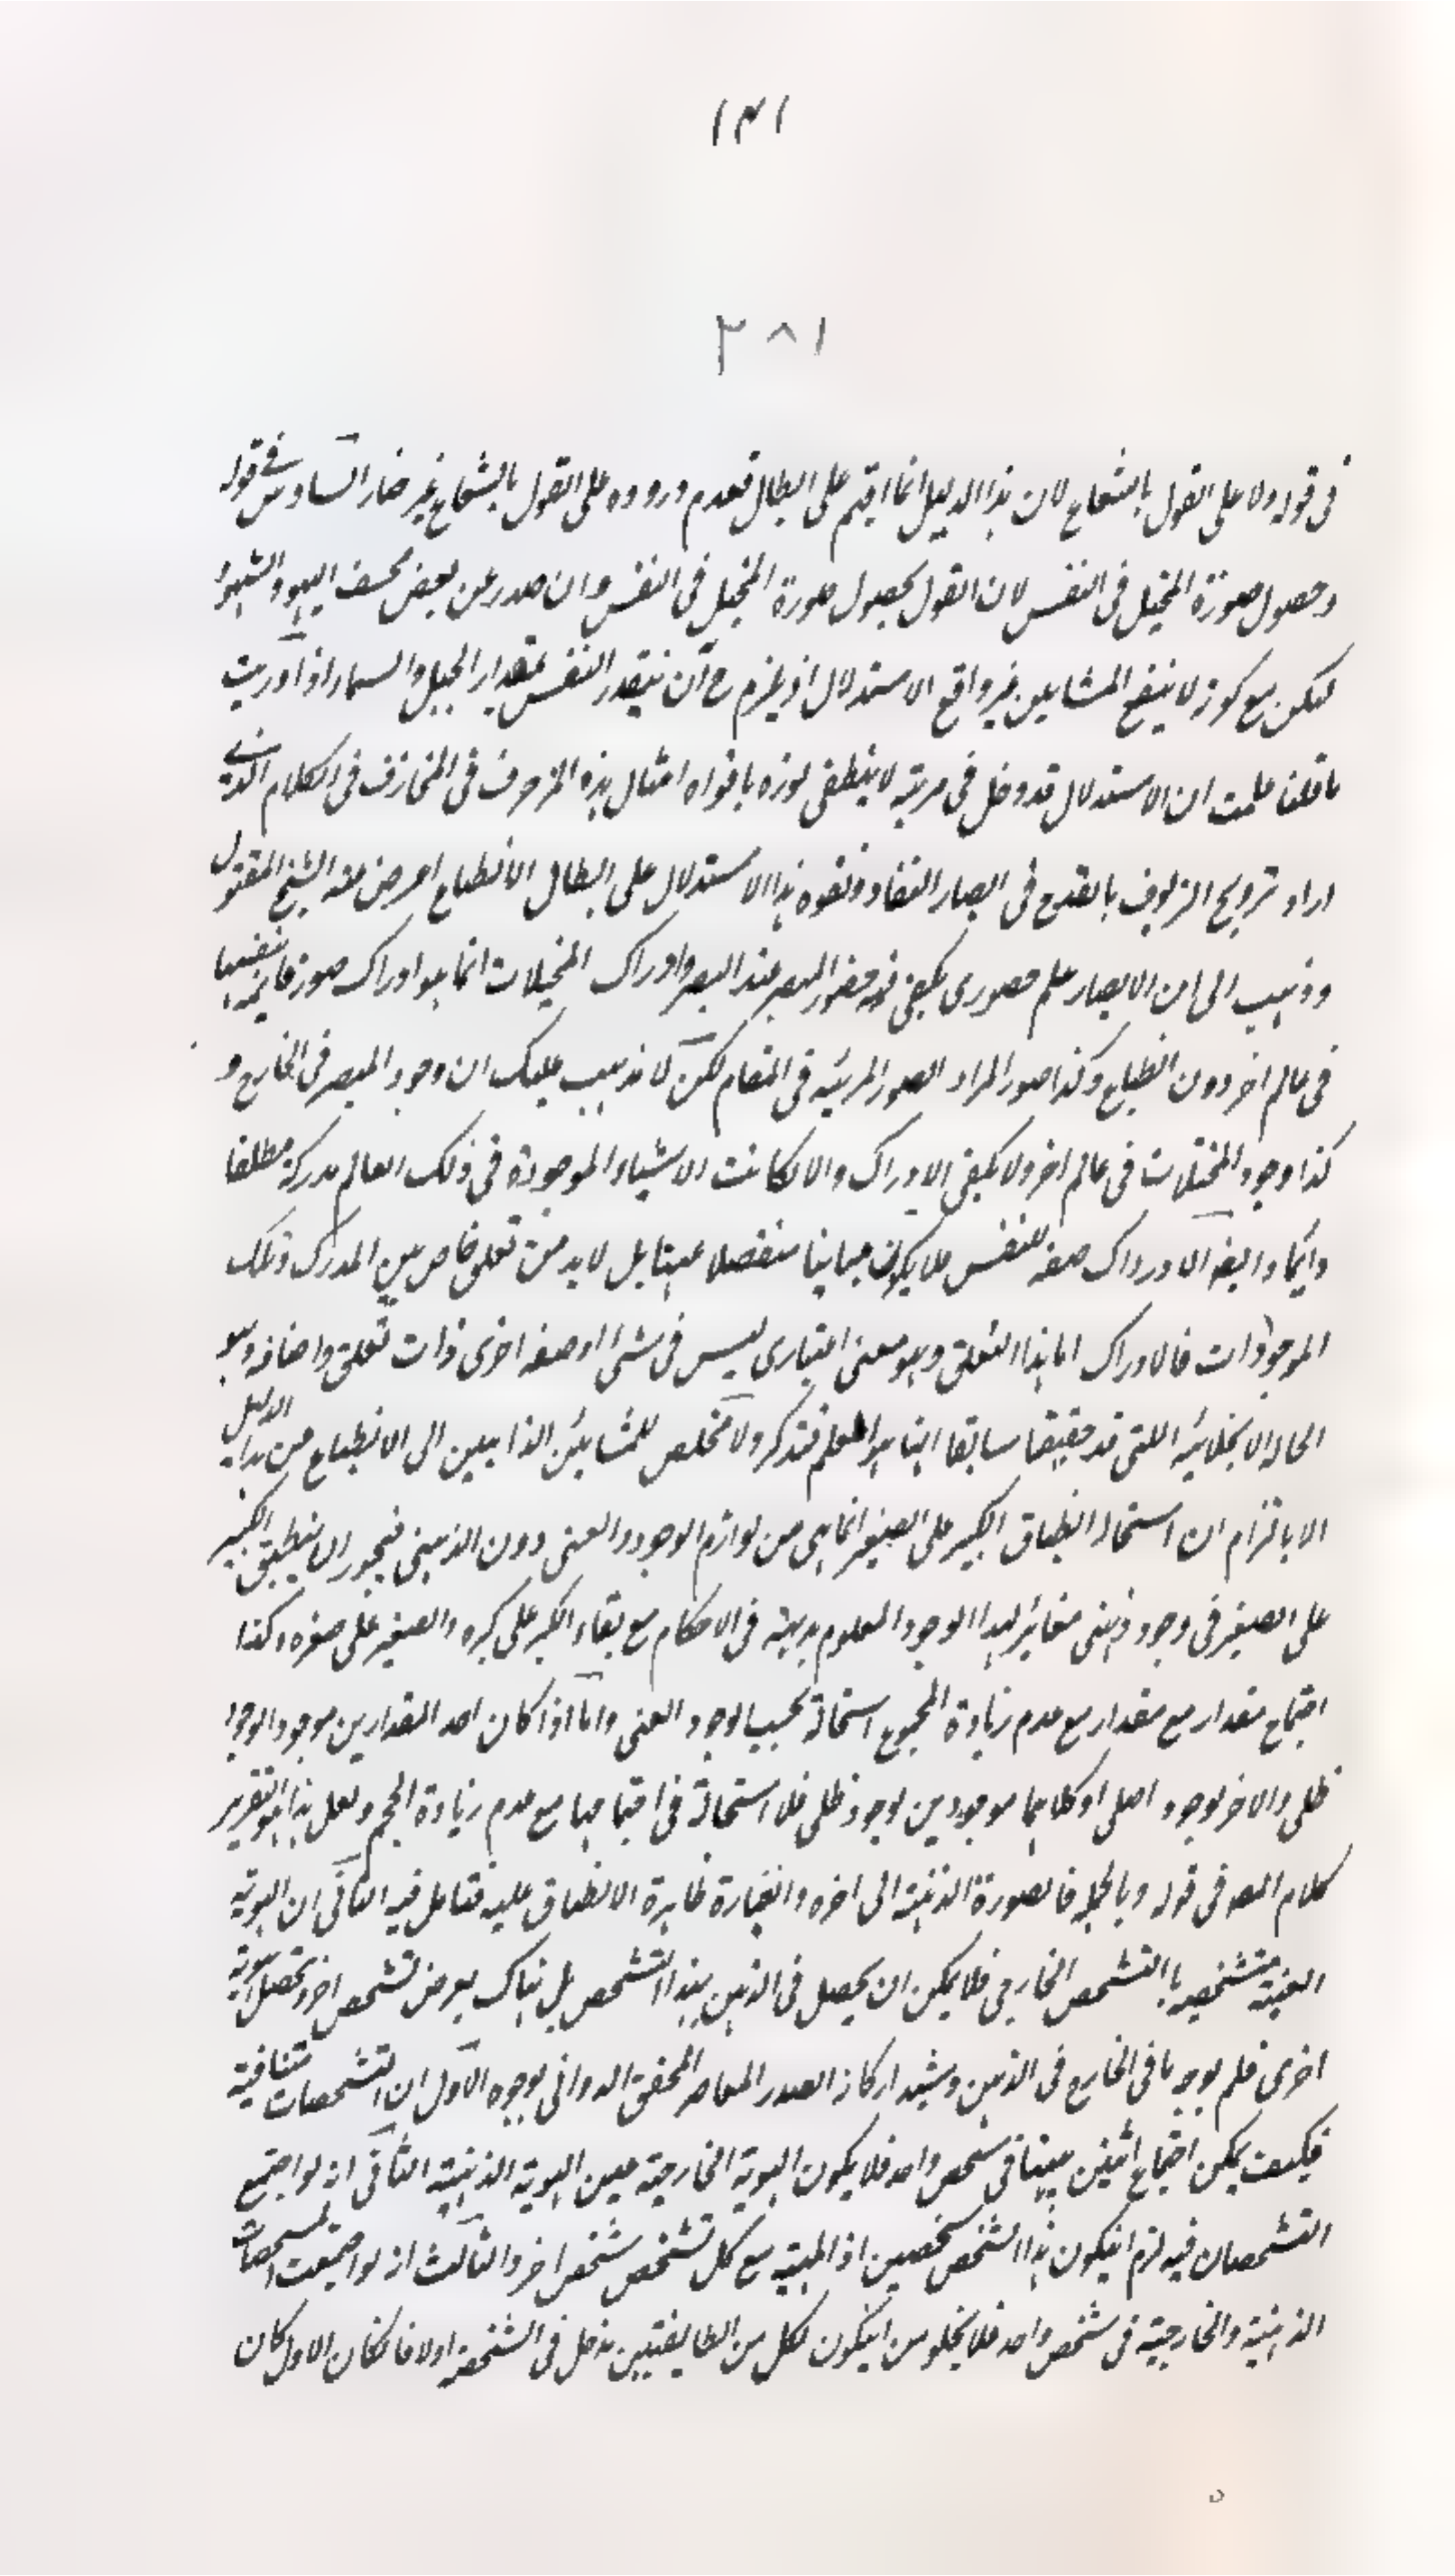 ١٣١
٢٨١
فى قوله ولا على القول بالشعاع لان هذا الدليل انما اقيم على ابطال فعدم وروده على القول بالشعاع غير ضار السادس فے قوله
وحصول صورة المخيل فى النفس لان القول بحصول صورة المخيل فى النفس وان صدر عن بعض السهو والشهرة
لكن مع كونه لا ينفع المشايين غير واقع الاستدلال اذ يلزم ح ان يتقدر النفس بمقدار الجبل والسماء واذا دريت
ما قلنا علمت ان الاستدلال قد دخل فى مرتبة لا ينطفى نوره بافواه امثال هذه المزخرف فى الكلام الذے
اراد ترويج الزيوف بالقدح فى ابصار النقاد ولقوة هذا الاستدلال على ابطال الانطباع اعرض عنه الشيخ المقتول
وذهب الى ان الابصار علم حضورى يكفى فيه حضور المبصر عند البصر وادراك المخيلات انما هو ادراك صور قائمة بنفسها
فى عالم اخر دون انطباع وكذا صور المراد الصور المرئية فى المنام لكن لا يذهب عليك ان وجود المبصر فى الخارج و
كذا وجود المتخيلات فى عالم اخر ولا يكفى الادراك والا لكانت الاشياء الموجودة فى ذلك العالم مدركة مطلقا
دائما وايضا الادراك صفة للنفس فلا يكون مباينا منفصلا عينا بل لابد من تعلق خاص بين المدرك وتلك
الموجودات فالادراك اما هذا التعلق وهو معنى اعتبارى ليس فى شئ او صفة اخرى ذات تعلق واضافة وهو
الحالة الانجلائية اللتى قد حققنا سابقا انها هى العلم فتذكر ولا مخلص للمشايين الذاهبين الى الانطباع من هذا الدليل
الا بالتزام ان استحالة انطباق الكبير على الصغير انما هى من لوازم الوجود العينى دون الذهنى فيجوز ان ينطبق الكبير
على الصغير فى وجود ذهنى مغاير لهذا الوجود المعلوم بديهة فى الاحكام مع بقاء الكبر على كبره والصغير على صغره وكذا
اجتماع مقدار مع مقدار مع عدم زيادة المجموع استحالة بحسب الوجود العينى واما اذا كان احد المقدارين موجود الوجود
ظلى والاخر لوجود اصلى او كلاهما موجودين لوجود ظلى فلا استحالة فى اجتماعهما مع عدم زيادة الحجم ولعل هذا هو تقرير
كلام المص فى قوله وبالجملة فالصورة الذهنية الى اخره والعبارة ظاهرة الانطباق عليه فتامل فيه الثانى ان الهوية
العينية متشخصة بالتشخص الخارجى فلا يمكن ان يحصل فى الذهن بهذا التشخص بل هناك يعرض تشخص اخر وتحصل هوية
اخرى فلم يوجد ما فى الخارج فى الذهن وشيد اركانه الصدر المعاصر المحقق الدوانى بوجوه الاول ان التشخصات متنافية
فكيف يمكن اجتماع اثنين بينها فى شخص واحد فلا يكون الهوية الخارجية عين الهوية الذهنية الثانى انه لو اجتمع
التشخصان فيه لزم ان يكون هذا الشخص شخصين اذ المهية مع كل تشخص شخص اخر والثالث انه لو اجتمعت التشخصات
الذهنية والخارجية فى شخص واحد فلا يخلو من ان يكون لكل من الطايفتين مدخل فى الشخصية اولا فان كان الاول كان